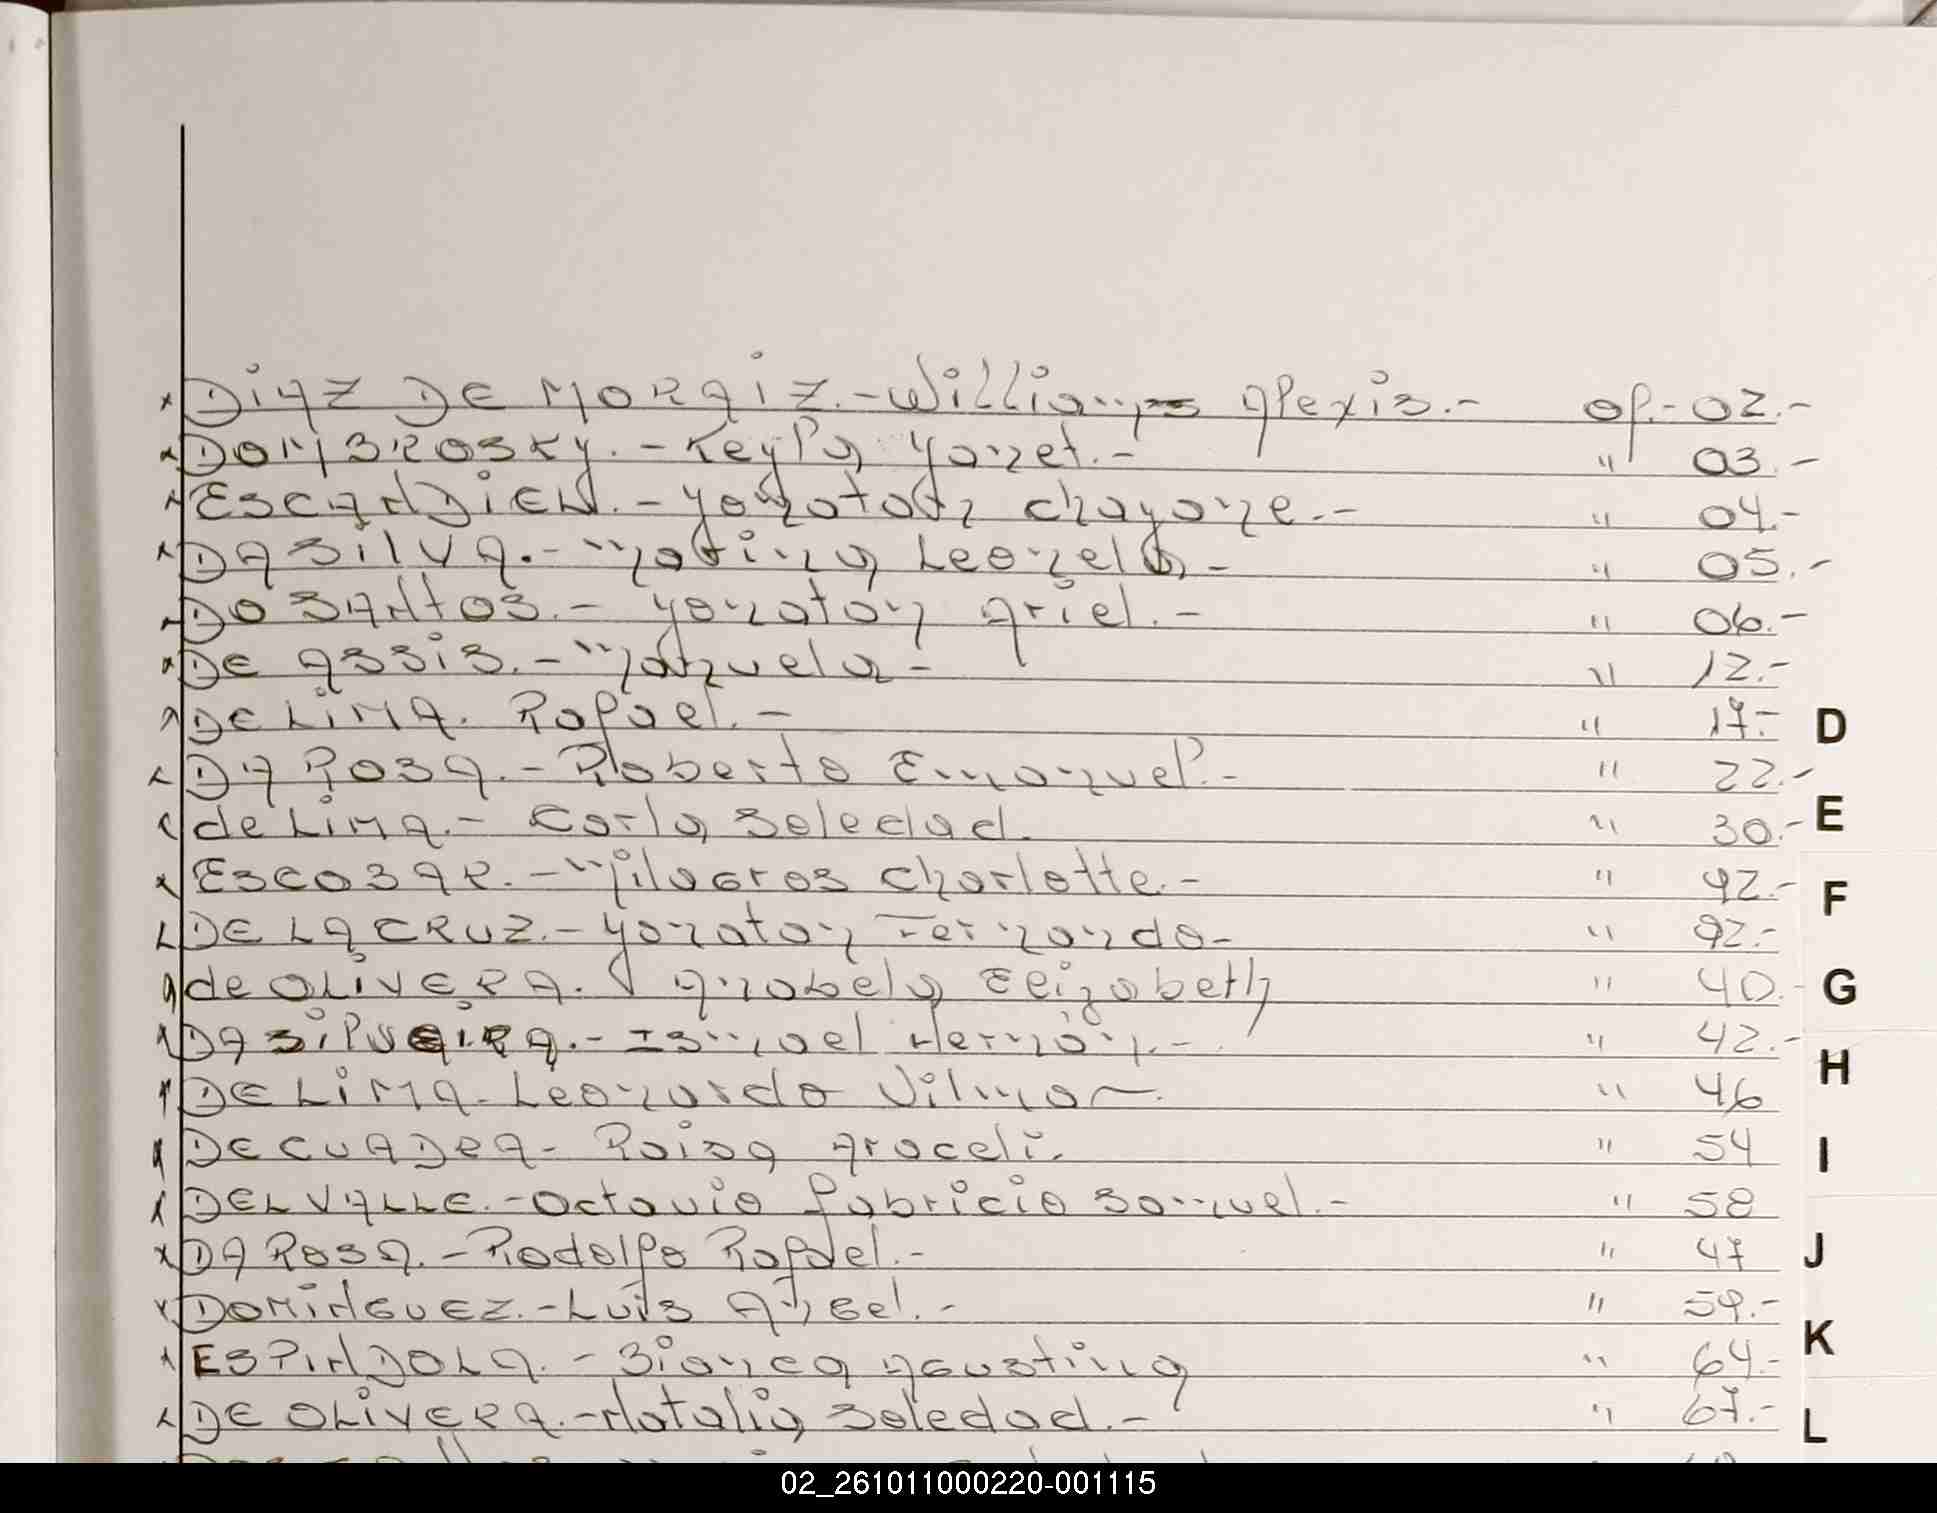 DiAZ DE MORAiZ.- Willians Alexis.- of.- 02.-
DOMBROSKY.- Keyla Yanet.- " 03.-
ESCANDIEN.- Yonatan Chayane.- " 04.-
DA SilVA.- Matina Leonela.- " 05.-
DO SANtOS.- Yonatan Ariel.- " 06.-
DE ASSiS.- Manuela- " 12.-
DE LiMA. Rafael.- " 17.-
DA ROSA.- Roberto Emanuel.- " 22.-
de LiMA.- Carla Soledad. " 30.-
ESCOBAR.- Milagros Charlotte.- " 92.-
DE LA CRUZ.- Yonatan Fernando- " 92.-
de OLiVERA. Anabela Elizabeth " 40.-
DA SilVEiRA.- Ismael Hernán.- " 42.-
DE LiMA- Leonardo Vilmar. " 46
DE CUADRA- Raisa Araceli. " 54
DEL VALLE.- Octavio fabricio Samuel.- " 58
DA ROSA.- Rodolfo Rafael.- " 47
DOMiNGUEZ.- Luis Angel.- " 59.-
ESPINDOLA.- Bianca Agustina " 64.-
DE OLiVERA.- Natalia Soledad.- " 67.-
D
E
F
G
H
I
J
K
L
02_261011000220-001115